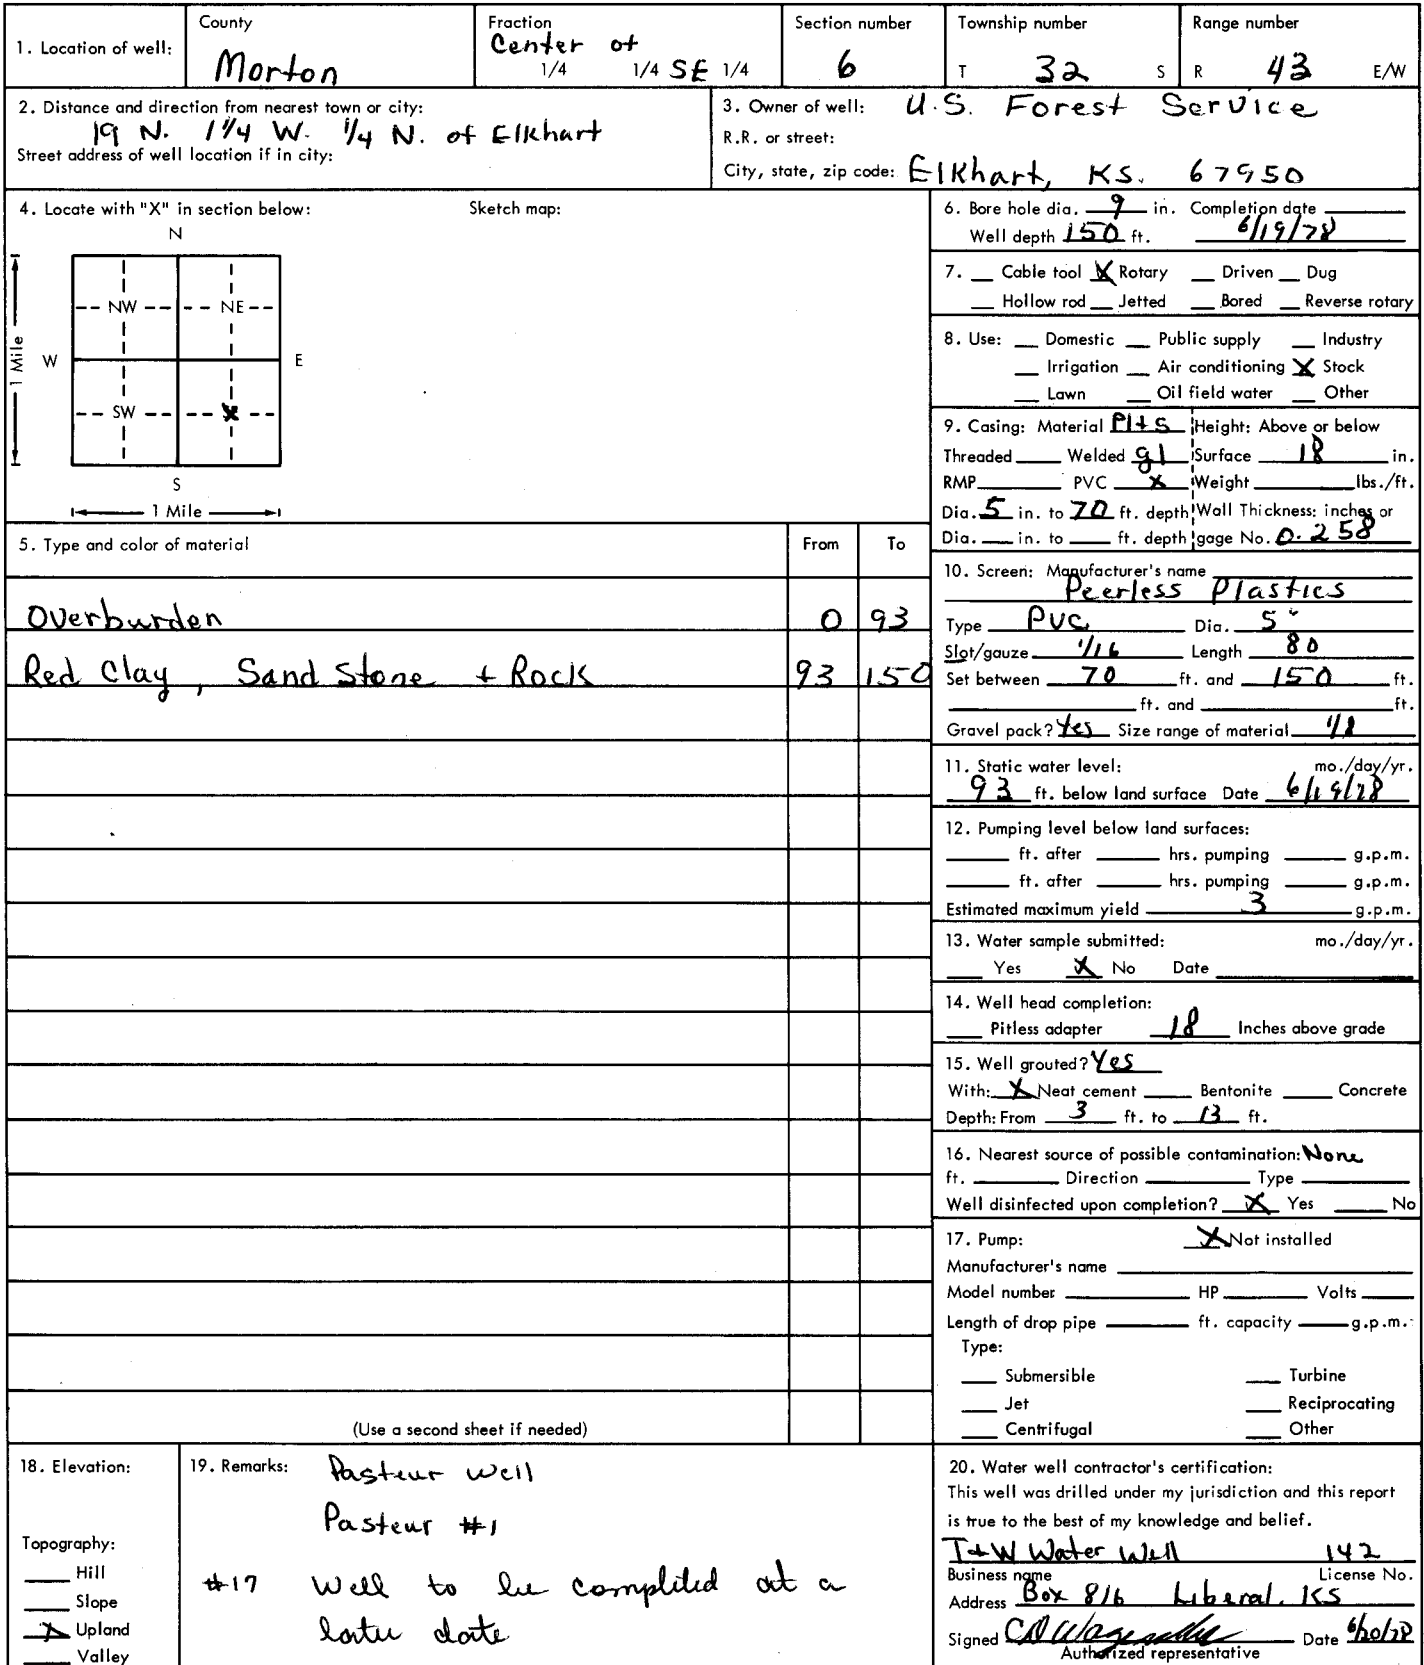 1. Location of well:
County
Morton
Fraction
Center of
1/4 1/4 SE 1/4
Section number
6
Township number
T 32 S
Range number
R 43 E/W
2. Distance and direction from nearest town or city:
19 N. 1 1/4 W. 1/4 N. of Elkhart
Street address of well location if in city:
3. Owner of well: U.S. Forest Service
R.R. or street:
City, state, zip code: Elkhart, KS. 67950
4. Locate with "X" in section below:
Sketch map:
N
NW NE
W E
1 Mile
SW X
S
1 Mile
5. Type and color of material From To
Overburden 0 93
Red Clay, Sand Stone + Rock 93 150
(Use a second sheet if needed)
6. Bore hole dia. 9 in. Completion date
Well depth 150 ft. 6/19/78
7. Cable tool X Rotary Driven Dug
Hollow rod Jetted Bored Reverse rotary
8. Use: Domestic Public supply Industry
Irrigation Air conditioning X Stock
Lawn Oil field water Other
9. Casing: Material Height: Above or below
Threaded Welded gl Surface 18 in.
RMP PVC X Weight lbs./ft.
Dia. 5 in. to 70 ft. depth Wall Thickness: inches or
Dia. in. to ft. depth gage No. 0.258
10. Screen: Manufacturer's name
Peerless Plastics
Type PVC Dia. 5"
Slot/gauze 1/16 Length 80
Set between 70 ft. and 150 ft.
ft. and ft.
Gravel pack? Yes Size range of material 1/8
11. Static water level: mo./day/yr.
93 ft. below land surface Date 6/19/78
12. Pumping level below land surfaces:
ft. after hrs. pumping g.p.m.
ft. after hrs. pumping g.p.m.
Estimated maximum yield 3 g.p.m.
13. Water sample submitted: mo./day/yr.
Yes X No Date
14. Well head completion:
Pitless adapter 18 Inches above grade
15. Well grouted? Yes
With: X Neat cement Bentonite Concrete
Depth: From 3 ft. to 13 ft.
16. Nearest source of possible contamination: None
ft. Direction Type
Well disinfected upon completion? X Yes No
17. Pump: X Not installed
Manufacturer's name
Model number HP Volts
Length of drop pipe ft. capacity g.p.m.
Type:
Submersible Turbine
Jet Reciprocating
Centrifugal Other
18. Elevation:
Topography:
Hill
Slope
X Upland
Valley
19. Remarks: Pasteur Well
Pasteur #1
#17 Well to be complited at a
later date
20. Water well contractor's certification:
This well was drilled under my jurisdiction and this report
is true to the best of my knowledge and belief.
T+W Water Well 142
Business name License No.
Address Box 816 Liberal, KS
Signed Date 6/20/78
Authorized representative